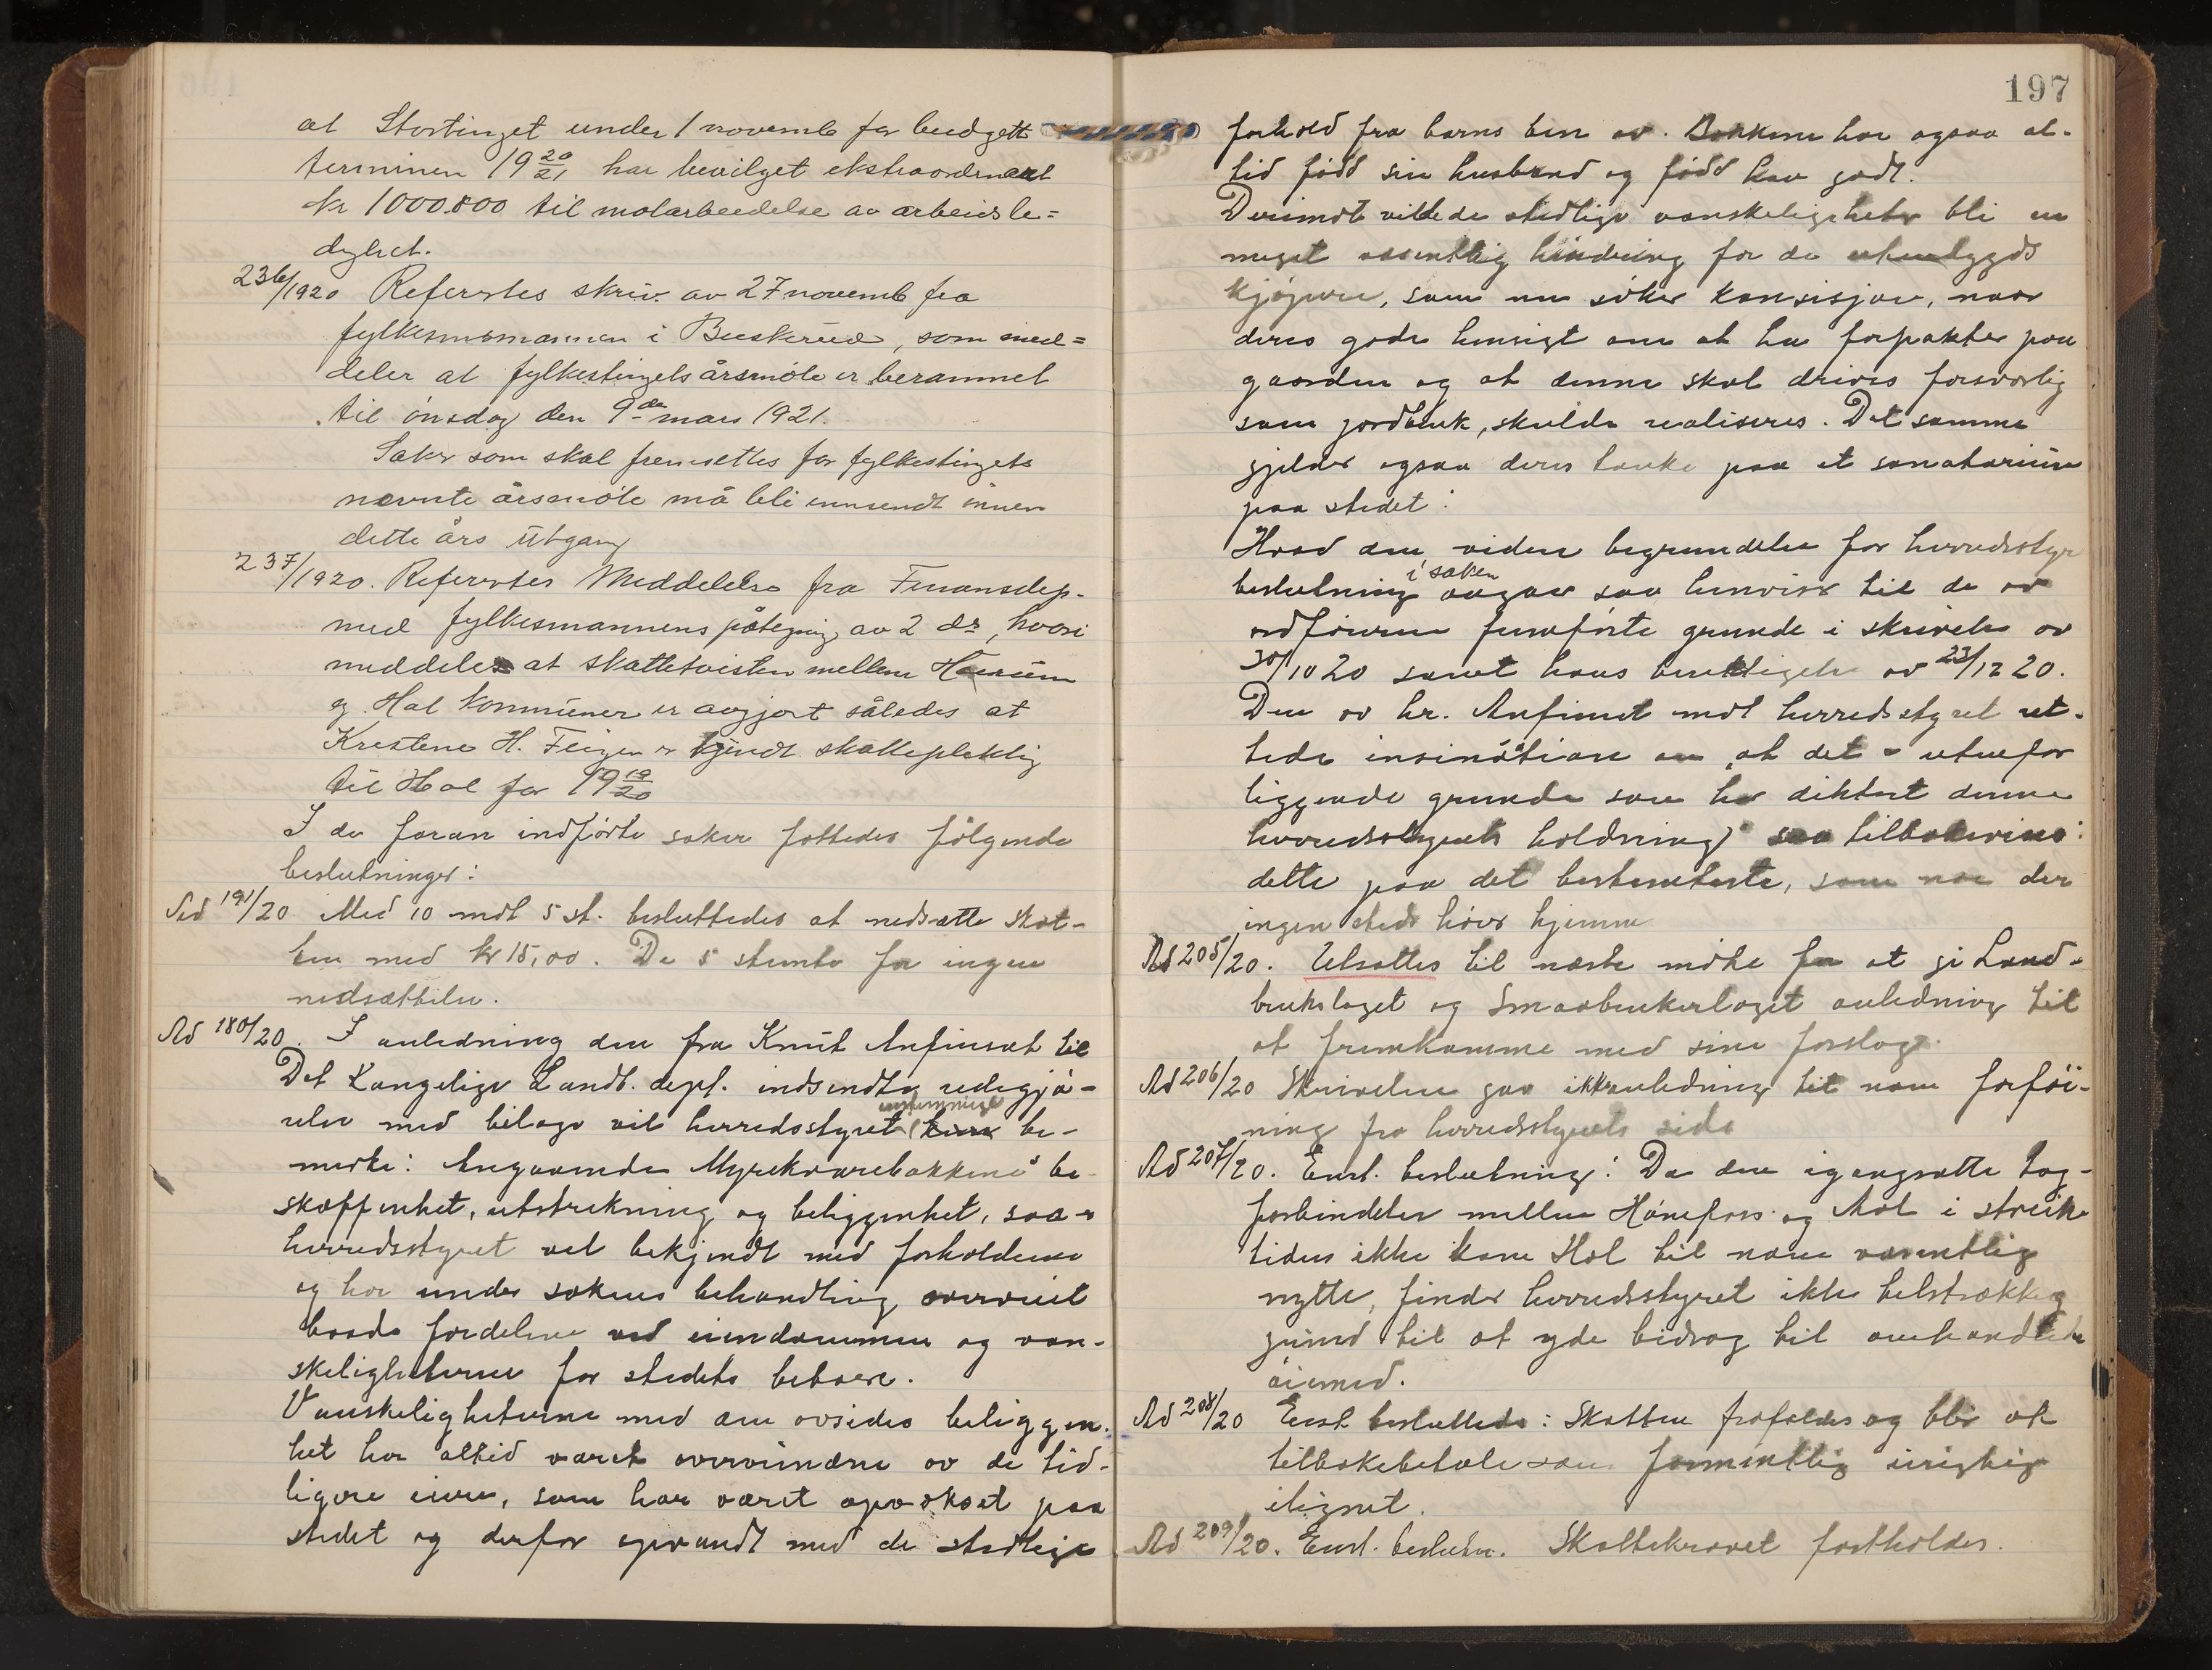 at Stortinget under 1 novemb for budgett
terminen 19 20/21 har bevilget ekstraordinært
kr 1000.000 til motarbeidelse av arbeidsle=
dighet.
236/1920 Refertes skriv. av 27 novemb fra
fylkesmannen i Buskerud, som med=
deler at fylkestingets årsmöte er berammet
til onsdag den 9de mars 1921.
Saker som skal fremsettes for fylkestingets
nevnte årsmöte må bli innsendt innen
dette års utgang
237/1920. Refertes Meddelelse fra Finansdep.
med fylkesmannens påtegning av 2 ds, hvori
meddeles at skattetvisten mellem
og Hol kommuner er avgjort således at
Kristene H. er kjendt skattepliktig
til Hol for 19 19/20
I de foran indførte saker fattedes følgende
beslutninger:
Ad 191/20 Med 10 mot 5 st. besluttedes at nedsætte skat-
ten med kr 15,00. De 5 stemte for ingen
nedsættelse.
Ad 180/20. I anledning den fra Knut Anfinset til
Det Kongelige Landb. dept. indsendte redegjö-
relse med bilage vil herredsstyret enstemmige be-
merke: Angaaende Myrekvarebakkens be-
skaffenhet, utstrekning og beliggenhet, saa er
herredsstyret vel bekjendt med forholdene
og har under sakens behandling overveiet
baade fordelene ved eiendommen og van-
skelighetene for stedets beboere.
Vanskelighetene med den avsides beliggen-
het har altid været overvundne av de tid-
ligere eiere, som har været opvokset paa
stedet og derfor opvandt med de stedlige
197
forhold fra barns ben av. Bakken har ogsaa al-
tid född sin husbond og född ham godt.
Derimot vilde de stedlige vanskeligheter bli en
meget væsentlig hindring for de utenbygds
kjöpere, som nu söker konsisjon, naar
deres gode hensigt om at ha forpakter paa
gaarden og at denne skal drives forsvarlig
som jordbruk, skulde realiseres. Det samme
gjelder ogsaa deres tanke paa et sanatorium
paa stedet.
Hvad den videre begrundelse for herredsstyr
beslutning i saken angaar saa henvises til de av
ordföreren fremförte grunde i skrivelse av
30/10 20 samt hans av 23/12 20.
Den av hr. Anfinset mot herredsstyret ret-
tede insinuation om „at det er utenfor
liggende grunde som har diktert denne
herredsstyrets holdning" saa tilbakevises
dette paa det bestemteste, som noe der
ingen steds hörer hjemme
Ad 205/20. Utsattes til næste möte for at gi Land-
brukslaget og Smaabrukerlaget anledning til
at fremkomme med sine forslag.
Ad 206/20 Skrivelsen gav ikke anledning til noen forföi-
ning fra herredsstyrets side
Ad 207/20. Enst. beslutning: Da den igangsatte tog-
forbindelse mellem Hönefoss og Aal i streik
tiden ikke kom Hol til noen væsentlig
nytte, finder herredsstyret ikke tilstrækkelig
grund til at yde bidrag til omhandlede
öiemed.
Ad 208/20 Enst. besluttede: Skatten frafaldes og blir at
tilbakebetale som formentlig urigtig
ilignet.
Ad 209/20. Enst. beslutn. Skattekravet fastholdes.